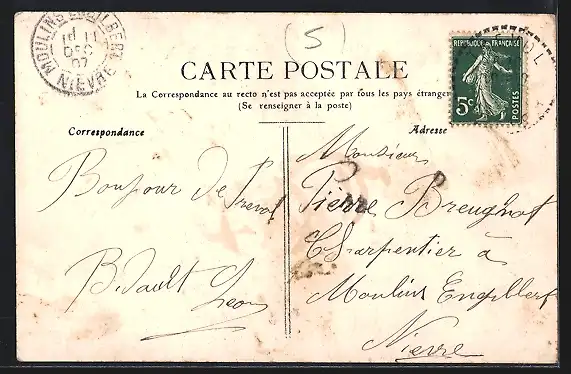 MOULINS ENGILBERT
11
DEC
07
(5)
CARTE POSTALE
La Correspondance au recto n'est pas acceptée par tous les pays étranger
(Se renseigner à la poste)
REPUBLIQUE FRANÇAISE
5c
POSTES
Correspondance
Adresse
Bonjour de Preval
Bidault Leon
Monsieur
Pierre Breugnot
Charpentier à
Moulins Engilbert
Nievre